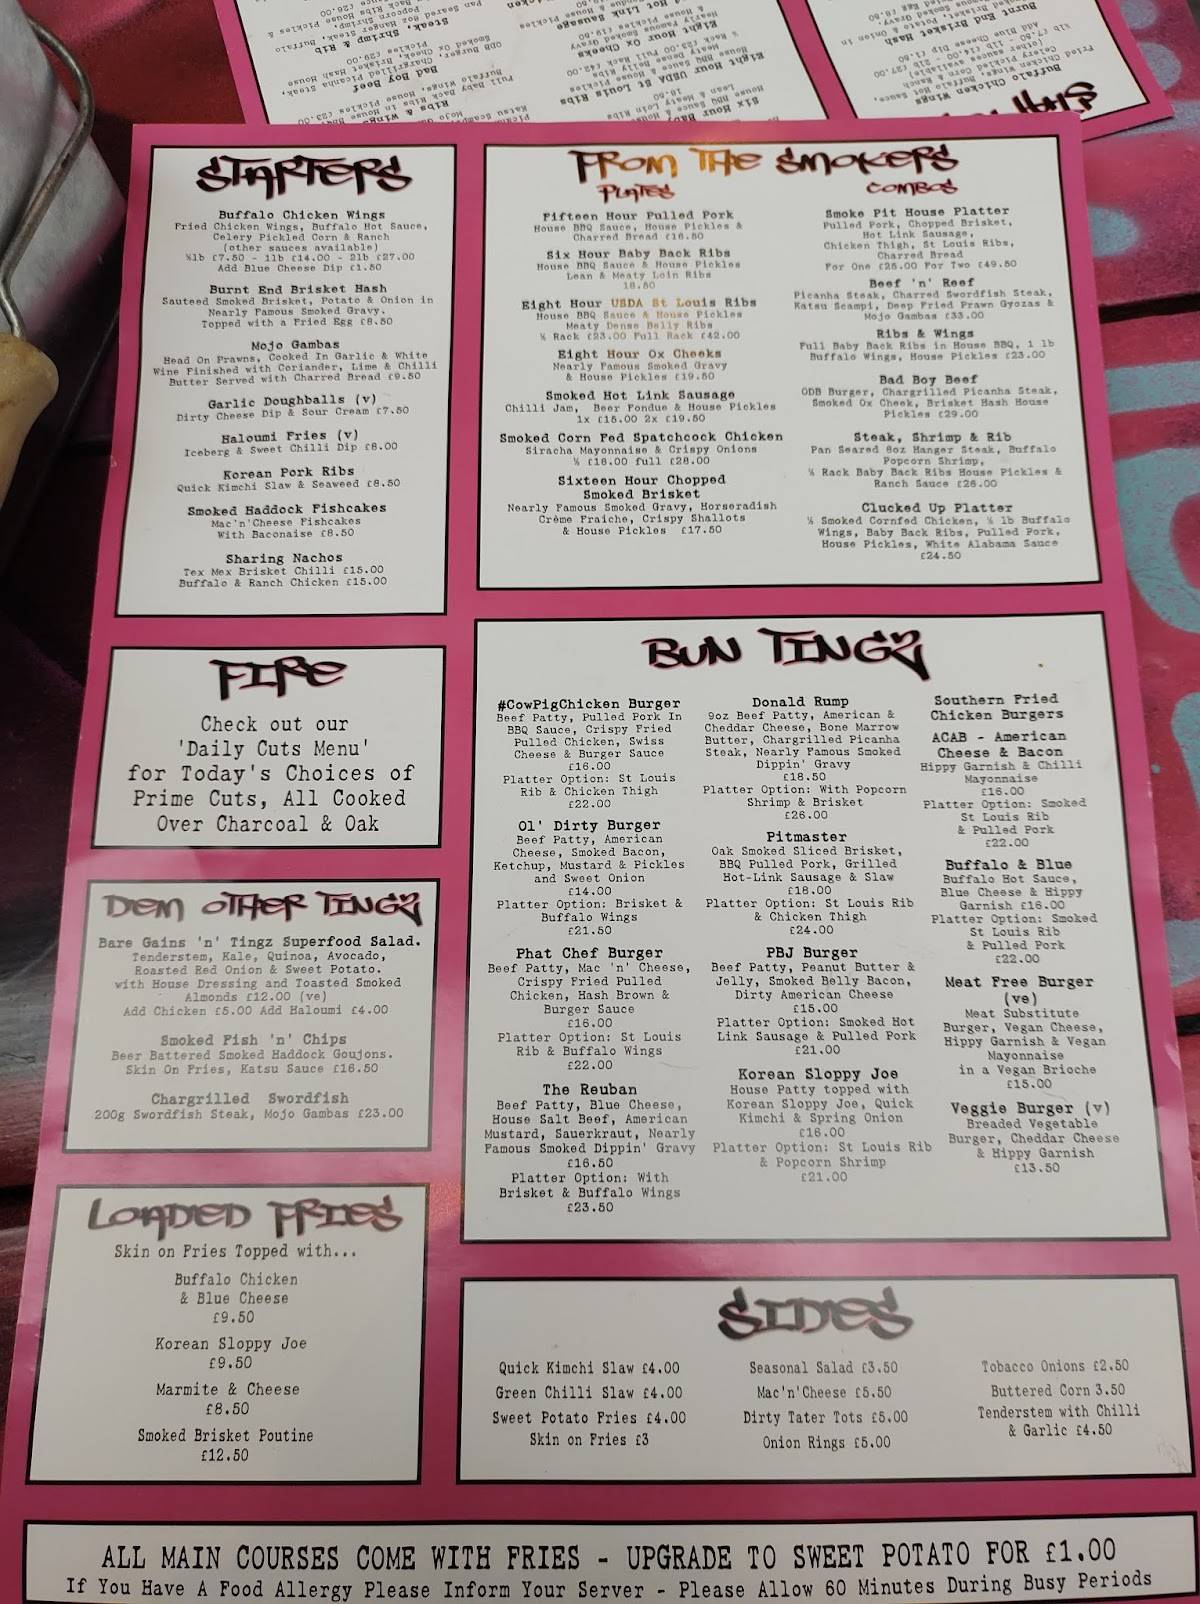 STARTERS
Buffalo Chicken Wings
Fried Chicken Wings, Buffalo Hot Sauce,
Celery Pickled Corn & Ranch
(other sauces available)
½lb £7.50 - 1lb £14.00 - 2lb £27.00
Add Blue Cheese Dip £1.50
Burnt End Brisket Hash
Sauteed Smoked Brisket, Potato & Onion in
Nearly Famous Smoked Gravy.
Topped with a Fried Egg £8.50
Mojo Gambas
Head On Prawns, Cooked In Garlic & White
Wine Finished with Coriander, Lime & Chilli
Butter Served with Charred Bread £9.50
Garlic Doughballs (v)
Dirty Cheese Dip & Sour Cream £7.50
Haloumi Fries (v)
Iceberg & Sweet Chilli Dip £8.00
Korean Pork Ribs
Quick Kimchi Slaw & Seaweed £8.50
Smoked Haddock Fishcakes
Mac'n'Cheese Fishcakes
With Baconaise £8.50
Sharing Nachos
Tex Mex Brisket Chilli £15.00
Buffalo & Ranch Chicken £15.00
FIRE
Check out our
'Daily Cuts Menu'
for Today's Choices of
Prime Cuts, All Cooked
Over Charcoal & Oak
DEM OTHER TINGZ
Bare Gains 'n' Tingz Superfood Salad.
Tenderstem, Kale, Quinoa, Avocado,
Roasted Red Onion & Sweet Potato.
with House Dressing and Toasted Smoked
Almonds £12.00 (ve)
Add Chicken £5.00 Add Haloumi £4.00
Smoked Fish 'n' Chips
Beer Battered Smoked Haddock Goujons.
Skin On Fries, Katsu Sauce £16.50
Chargrilled Swordfish
200g Swordfish Steak, Mojo Gambas £23.00
LOADED FRIES
Skin on Fries Topped with...
Buffalo Chicken
& Blue Cheese
£9.50
Korean Sloppy Joe
£9.50
Marmite & Cheese
£8.50
Smoked Brisket Poutine
£12.50
FROM THE SMOKERS
PLATES
Fifteen Hour Pulled Pork
House BBQ Sauce, House Pickles &
Charred Bread £16.50
Six Hour Baby Back Ribs
House BBQ Sauce & House Pickles
Lean & Meaty Loin Ribs
18.50
Eight Hour USDA St Louis Ribs
House BBQ Sauce & House Pickles
Meaty Dense Belly Ribs
½ Rack £23.00 Full Rack £42.00
Eight Hour Ox Cheeks
Nearly Famous Smoked Gravy
& House Pickles £19.50
Smoked Hot Link Sausage
Chilli Jam, Beer Fondue & House Pickles
1x £15.00 2x £19.50
Smoked Corn Fed Spatchcock Chicken
Siracha Mayonnaise & Crispy Onions
½ £18.00 full £28.00
Sixteen Hour Chopped
Smoked Brisket
Nearly Famous Smoked Gravy, Horseradish
Crème Fraiche, Crispy Shallots
& House Pickles £17.50
COMBOS
Smoke Pit House Platter
Pulled Pork, Chopped Brisket,
Hot Link Sausage,
Chicken Thigh, St Louis Ribs,
Charred Bread
For One £25.00 For Two £49.50
Beef 'n' Reef
Picanha Steak, Charred Swordfish Steak,
Katsu Scampi, Deep Fried Prawn Gyozas &
Mojo Gambas £33.00
Ribs & Wings
Full Baby Back Ribs in House BBQ, 1 lb
Buffalo Wings, House Pickles £23.00
Bad Boy Beef
ODB Burger, Chargrilled Picanha Steak,
Smoked Ox Cheek, Brisket Hash House
Pickles £29.00
Steak, Shrimp & Rib
Pan Seared 8oz Hanger Steak, Buffalo
Popcorn Shrimp,
½ Rack Baby Back Ribs House Pickles &
Ranch Sauce £26.00
Clucked Up Platter
½ Smoked Cornfed Chicken, ½ lb Buffalo
Wings, Baby Back Ribs, Pulled Pork,
House Pickles, White Alabama Sauce
£24.50
BUN TINGZ
#CowPigChicken Burger
Beef Patty, Pulled Pork In
BBQ Sauce, Crispy Fried
Pulled Chicken, Swiss
Cheese & Burger Sauce
£16.00
Platter Option: St Louis
Rib & Chicken Thigh
£22.00
Ol' Dirty Burger
Beef Patty, American
Cheese, Smoked Bacon,
Ketchup, Mustard & Pickles
and Sweet Onion
£14.00
Platter Option: Brisket &
Buffalo Wings
£21.50
Phat Chef Burger
Beef Patty, Mac 'n' Cheese,
Crispy Fried Pulled
Chicken, Hash Brown &
Burger Sauce
£16.00
Platter Option: St Louis
Rib & Buffalo Wings
£22.00
The Reuban
Beef Patty, Blue Cheese,
House Salt Beef, American
Mustard, Sauerkraut, Nearly
Famous Smoked Dippin' Gravy
£16.50
Platter Option: With
Brisket & Buffalo Wings
£23.50
Donald Rump
9oz Beef Patty, American &
Cheddar Cheese, Bone Marrow
Butter, Chargrilled Picanha
Steak, Nearly Famous Smoked
Dippin' Gravy
£18.50
Platter Option: With Popcorn
Shrimp & Brisket
£26.00
Pitmaster
Oak Smoked Sliced Brisket,
BBQ Pulled Pork, Grilled
Hot-Link Sausage & Slaw
£18.00
Platter Option: St Louis Rib
& Chicken Thigh
£24.00
PBJ Burger
Beef Patty, Peanut Butter &
Jelly, Smoked Belly Bacon,
Dirty American Cheese
£15.00
Platter Option: Smoked Hot
Link Sausage & Pulled Pork
£21.00
Korean Sloppy Joe
House Patty topped with
Korean Sloppy Joe, Quick
Kimchi & Spring Onion
£16.00
Platter Option: St Louis Rib
& Popcorn Shrimp
£21.00
Southern Fried
Chicken Burgers
ACAB - American
Cheese & Bacon
Hippy Garnish & Chilli
Mayonnaise
£16.00
Platter Option: Smoked
St Louis Rib
& Pulled Pork
£22.00
Buffalo & Blue
Buffalo Hot Sauce,
Blue Cheese & Hippy
Garnish £16.00
Platter Option: Smoked
St Louis Rib
& Pulled Pork
£22.00
Meat Free Burger
(ve)
Meat Substitute
Burger, Vegan Cheese,
Hippy Garnish & Vegan
Mayonnaise
in a Vegan Brioche
£15.00
Veggie Burger (v)
Breaded Vegetable
Burger, Cheddar Cheese
& Hippy Garnish
£13.50
SIDES
Quick Kimchi Slaw £4.00
Green Chilli Slaw £4.00
Sweet Potato Fries £4.00
Skin on Fries £3
Seasonal Salad £3.50
Mac'n'Cheese £5.50
Dirty Tater Tots £5.00
Onion Rings £5.00
Tobacco Onions £2.50
Buttered Corn 3.50
Tenderstem with Chilli
& Garlic £4.50
ALL MAIN COURSES COME WITH FRIES - UPGRADE TO SWEET POTATO FOR £1.00
If You Have A Food Allergy Please Inform Your Server - Please Allow 60 Minutes During Busy Periods